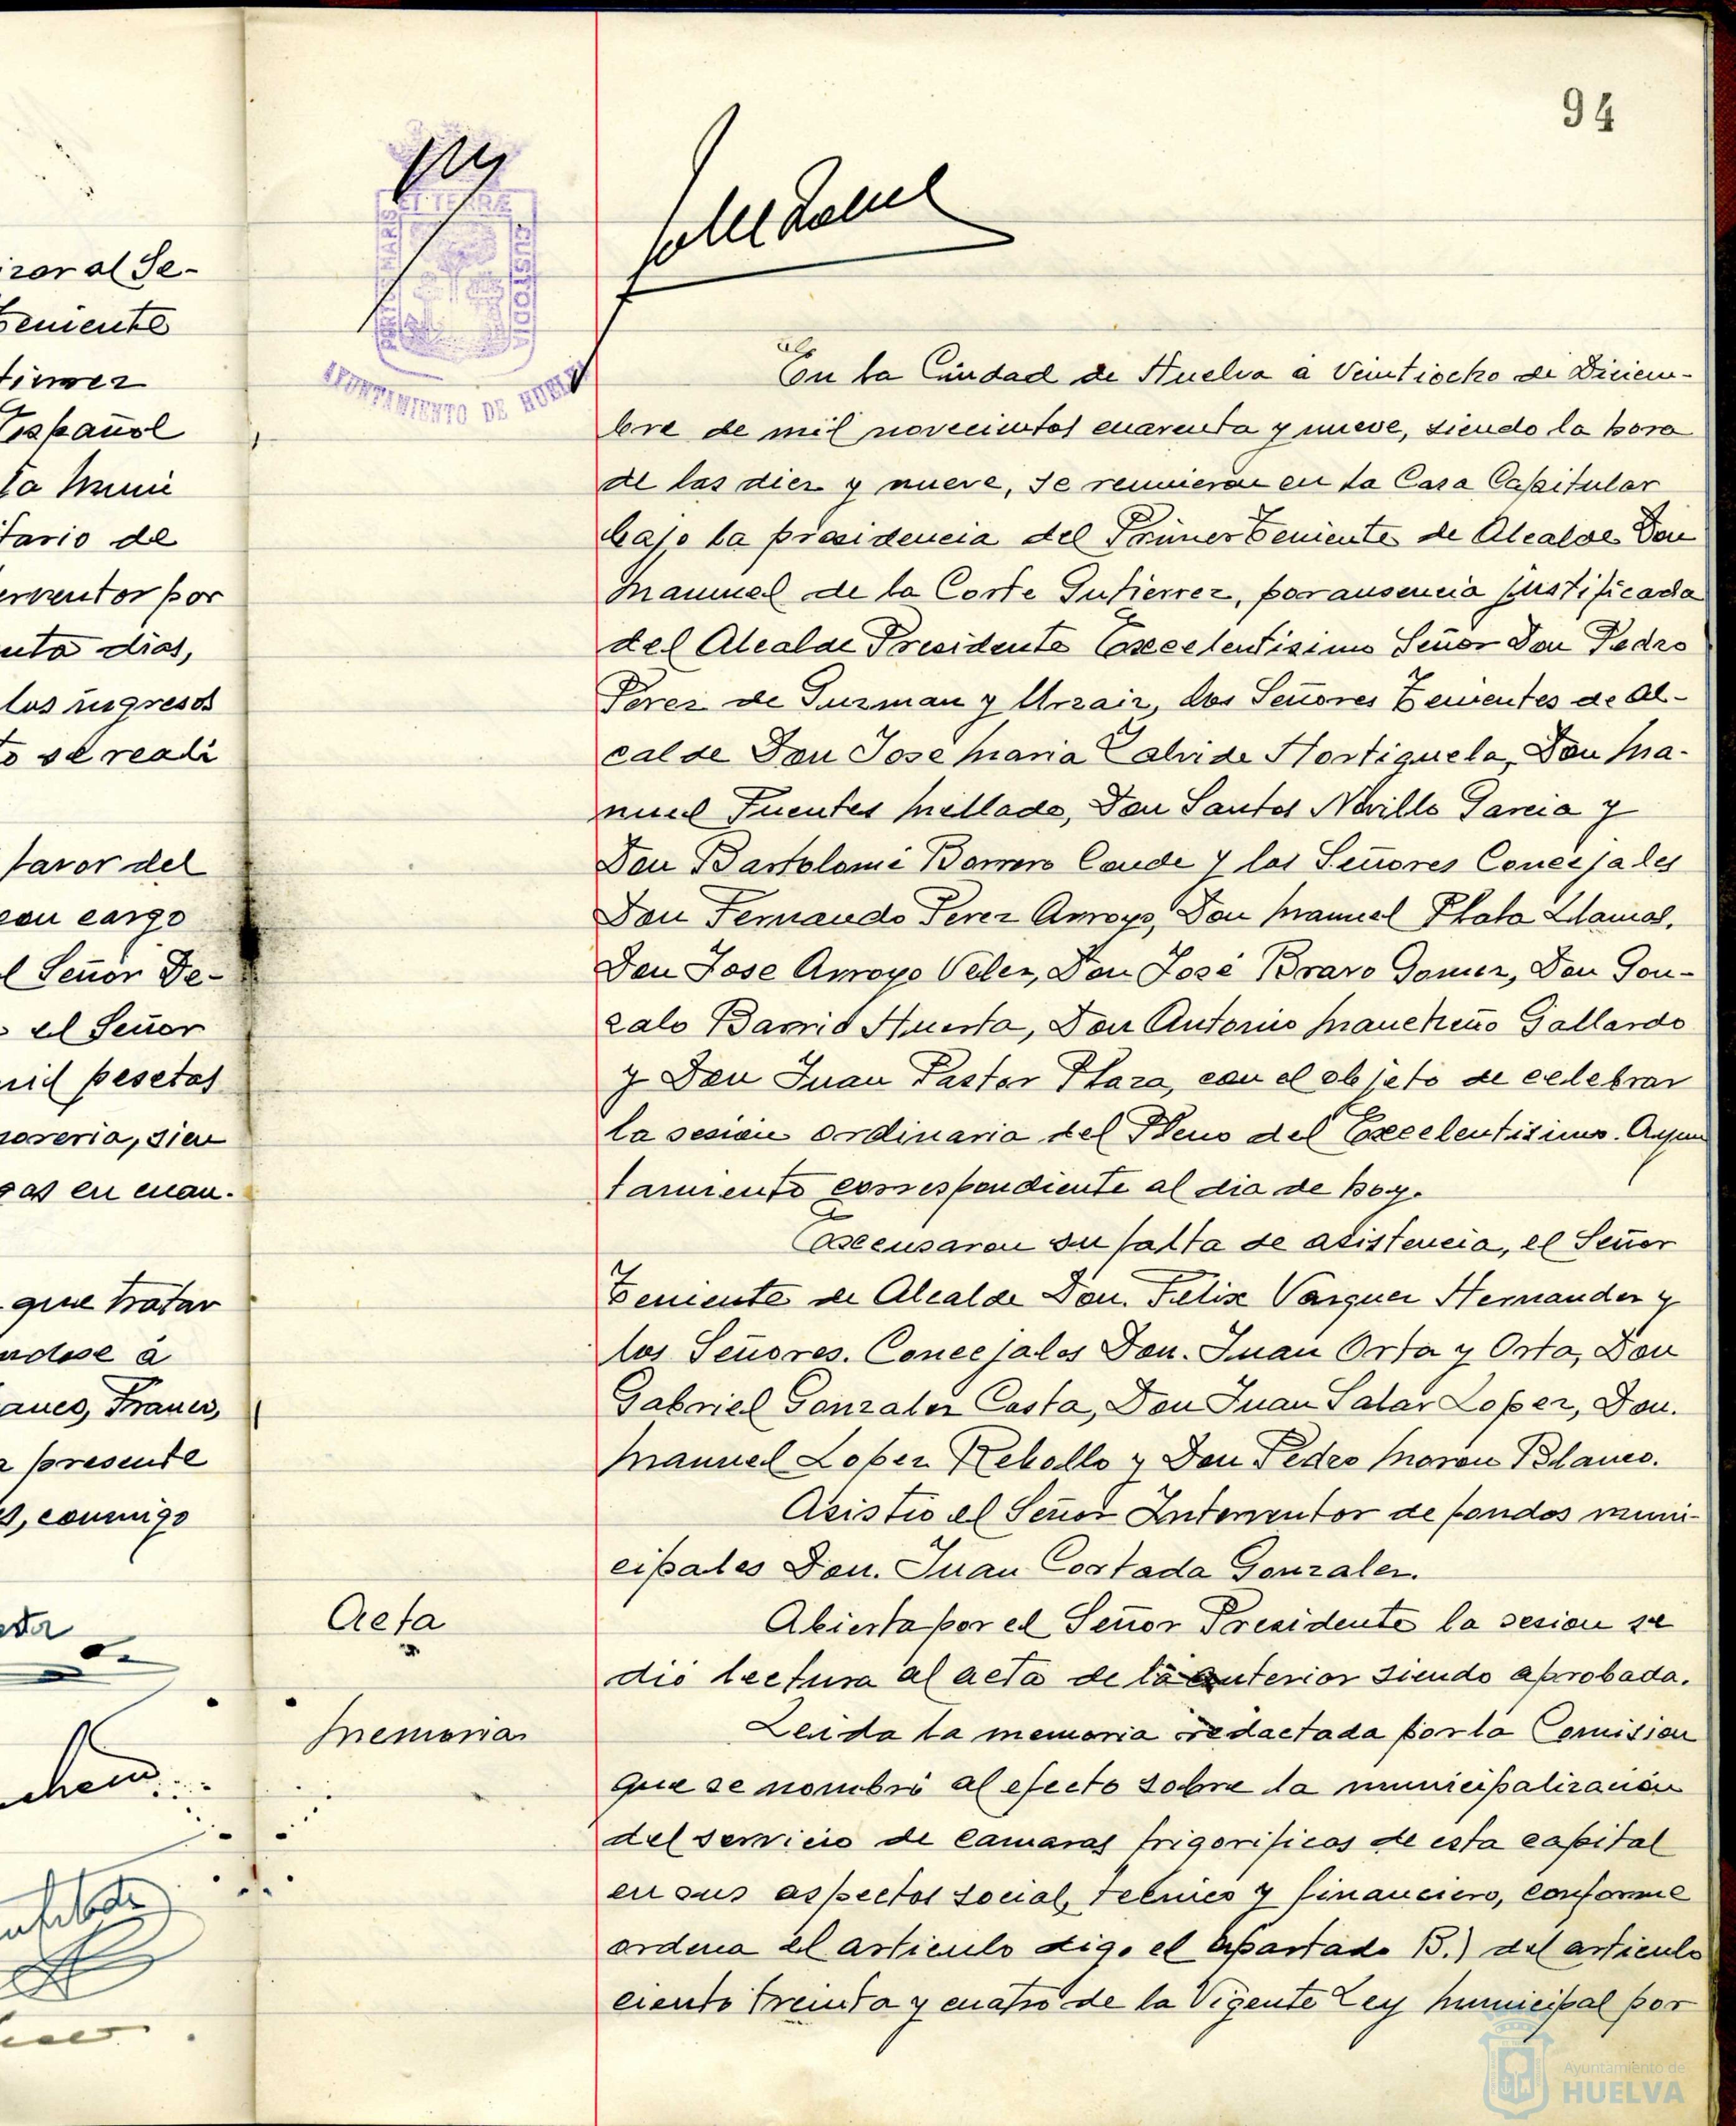 94
izar al Se-
Teniente
Español
la Muni
tario de
erventor por
enta dias,
los ingresos
to se reali
favor del
con cargo
l Señor De-
el Señor
mil pesetas
soreria, sien
gas en cuan.
que tratar
ndose á
anco, Franco,
a presente
s, conmigo
PORTUS MARIS ET TERRÆ CUSTODIA
AYUNTAMIENTO DE HUELVA
En la Ciudad de Huelva a Veintiocho de Diciem-
bre de mil novecientos cuarenta y nueve, siendo la hora
de las diez y nueve, se reunieron en la Casa Capitular
bajo la presidencia del Primer Teniente de Alcalde Don
Manuel de la Corte Gutierrez, por ausencia justificada
del Alcalde Presidente Excelentisimo Señor Don Pedro
Perez de Guzman y Urzaiz, los Señores Tenientes de Al-
calde Don Jose Maria Zalvide Hortiguela, Don Ma-
nuel Fuentes Mellado, Don Santos Novillo Garcia y
Don Bartolomé Borrero Conde y los Señores Concejales
Don Fernando Perez Arroyo, Don Manuel Plata Llamas,
Don Jose Arroyo Velez, Don José Bravo Gomez, Don Gon-
zalo Barrio Huerta, Don Antonio Mancheño Gallardo
y Don Juan Pastor Plaza, con el objeto de celebrar
la sesion ordinaria del Pleno del Excelentisimo. Ayun
tamiento correspondiente al dia de hoy.
Excusaron su falta de asistencia, el Señor
Teniente de Alcalde Don. Felix Vazquez Hernandez y
los Señores. Concejales Don. Juan Orta y Orta, Don
Gabriel Gonzalez Costa, Don Juan Salas Lopez, Don.
Manuel Lopez Rebollo y Don Pedro Moron Blanco.
Asistio el Señor Interventor de fondos muni-
cipales Don. Juan Cortada Gonzalez.
Acta
Abierta por el Señor Presidente la sesion se
dió lectura al acta de la anterior siendo aprobada.
Memoria
Leida la memoria redactada por la Comision
que se nombró al efecto sobre la municipalización
del servicio de camaras frigorificas de esta capital
en sus aspectos social, tecnico y financiero, conforme
ordena el articulo digo el apartado B.) del articulo
ciento treinta y cuatro de la Vigente Ley Municipal por
Ayuntamiento de
HUELVA